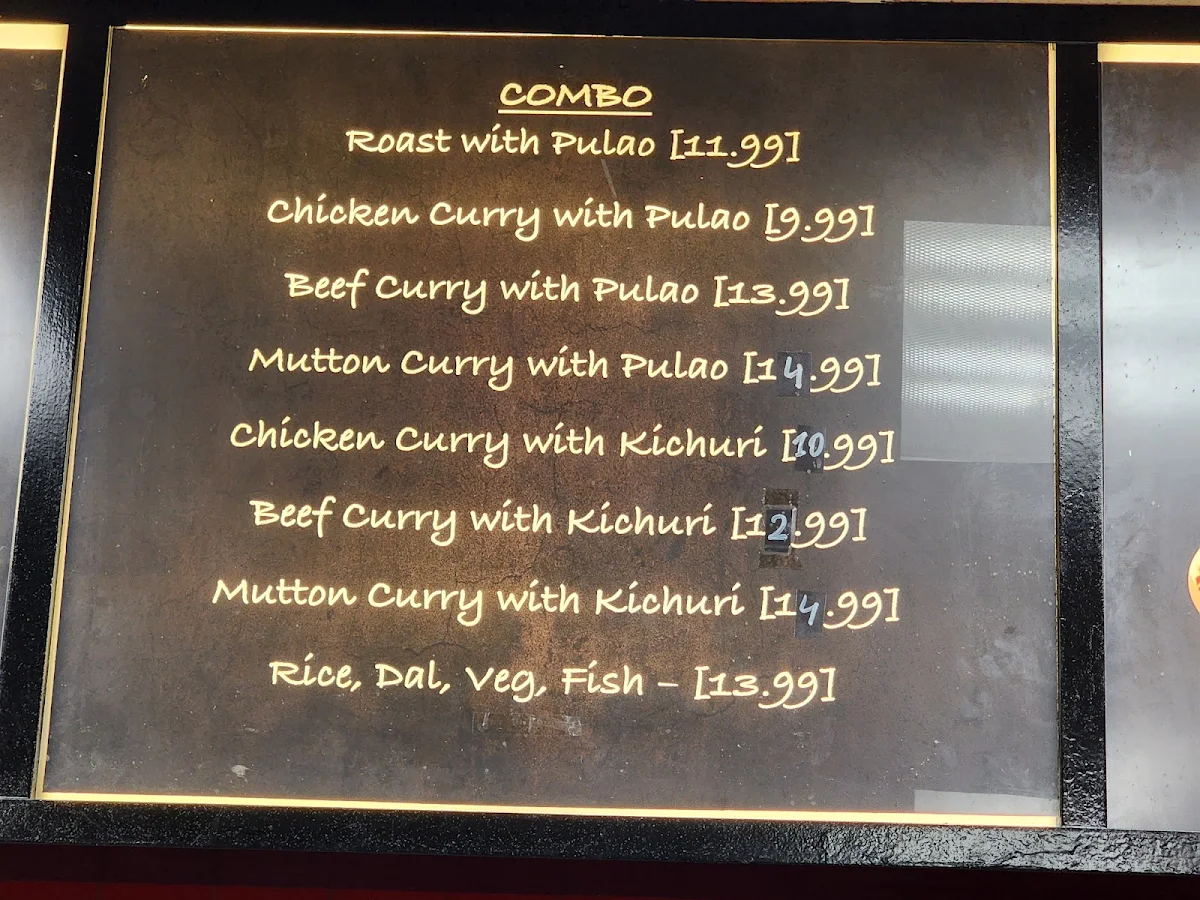 COMBO
Roast with Pulao [11.99]
Chicken Curry with Pulao [9.99]
Beef Curry with Pulao [13.99]
Mutton Curry with Pulao [14.99]
Chicken Curry with Kichuri [10.99]
Beef Curry with Kichuri [12.99]
Mutton Curry with Kichuri [14.99]
Rice, Dal, Veg, Fish – [13.99]